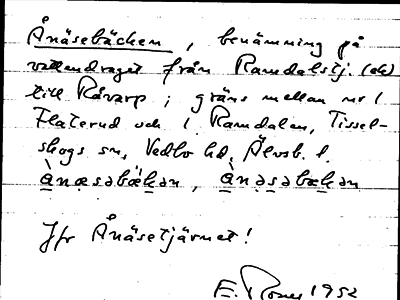 Ånäsebäcken, benämning på
vattendraget från Ramdalstj. (ek)
till Råvarp; gräns mellan nr 1
Flaterud och 1 Ramdalen, Tissel-
skogs sn, Vedbo hd, Älvsb. l.
ànæsəbækən, ànəsəbækən
Jfr Ånäsetjärnet!
E. 1952